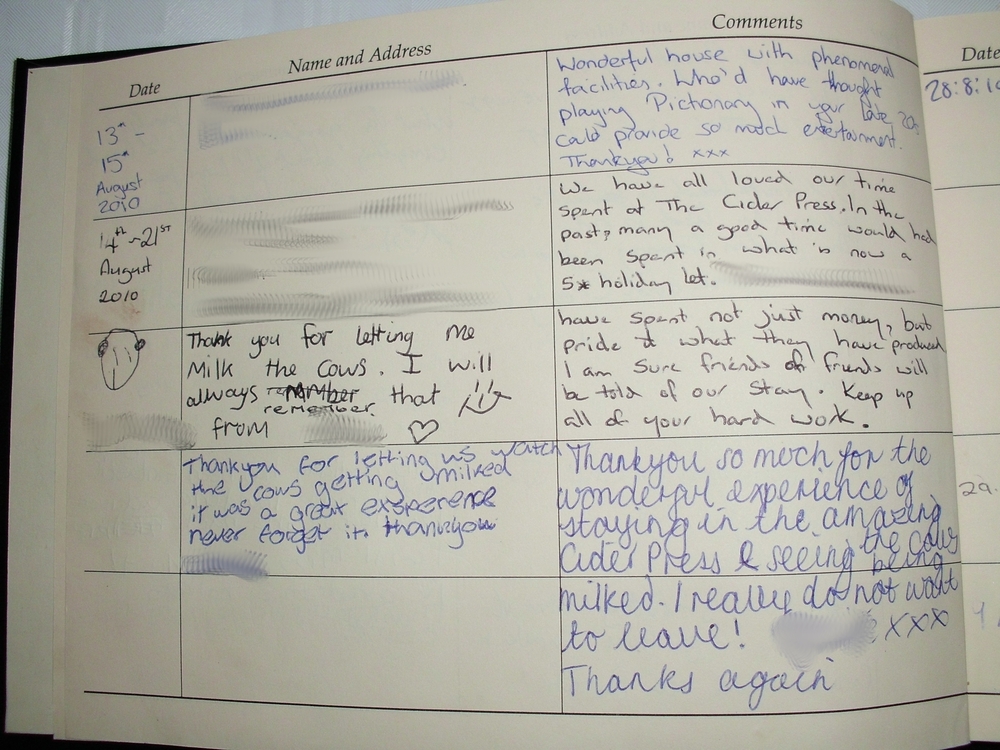 Date
Name and Address
Comments
Date
28:8:10
13th –
15th
August
2010
Wonderful house with phenomenal
facilities. Who'd have thought
playing Pictionary in your late 20s
could provide so much entertainment.
Thankyou! xxx
14th ~ 21st
August
2010
We have all loved our time
spent at The Cider Press. In the
past, many a good time would had
been spent in what is now a
5* holiday let.
Thank you for letting me
Milk the cows. I will
always remember that
remember
from
have spent not just money, but
pride it what they have produced
I am sure friends of friends will
be told of our stay. Keep up
all of your hard work.
Thankyou for letting us watch
the cows getting milked
it was a great exsperence
never forget it. thankyou
Thankyou so much for the
wonderful experience of
staying in the amazing
Cider Press & seeing the cows
being
milked. I really do not want
to leave! xxx
Thanks again
29.